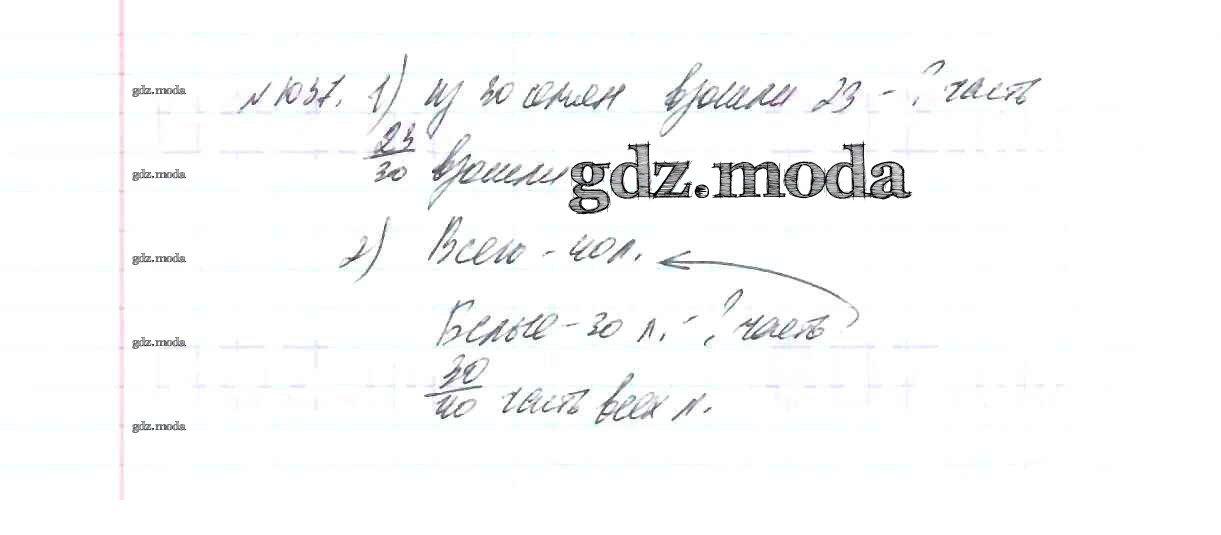 gdz.moda
№ 1037. 1) из 30 семян взошли 23 - ? часть
23/30 взошли
gdz.moda
gdz.moda
2) Всего - 40 л.
gdz.moda
Белые - 30 л. - ? часть
gdz.moda
30/40 часть всех л.
gdz.moda